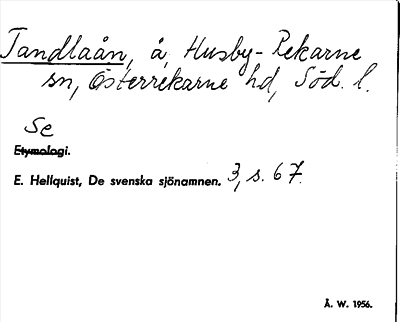 Tandlaån, å, Husby-Rekarne
sn, Österrekarne hd, Söd. l.
Se
Etymologi.
E. Hellquist, De svenska sjönamnen. 3, s. 67.
Å. W. 1956.